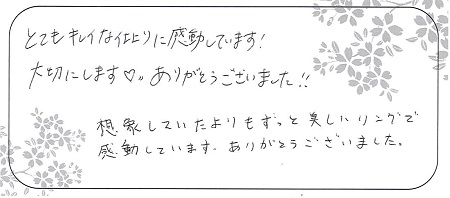 とてもキレイな仕上りに感動しています!
大切にします♡。ありがとうございました!!
想像していたよりもずっと美しいリングで
感動しています。ありがとうございました。